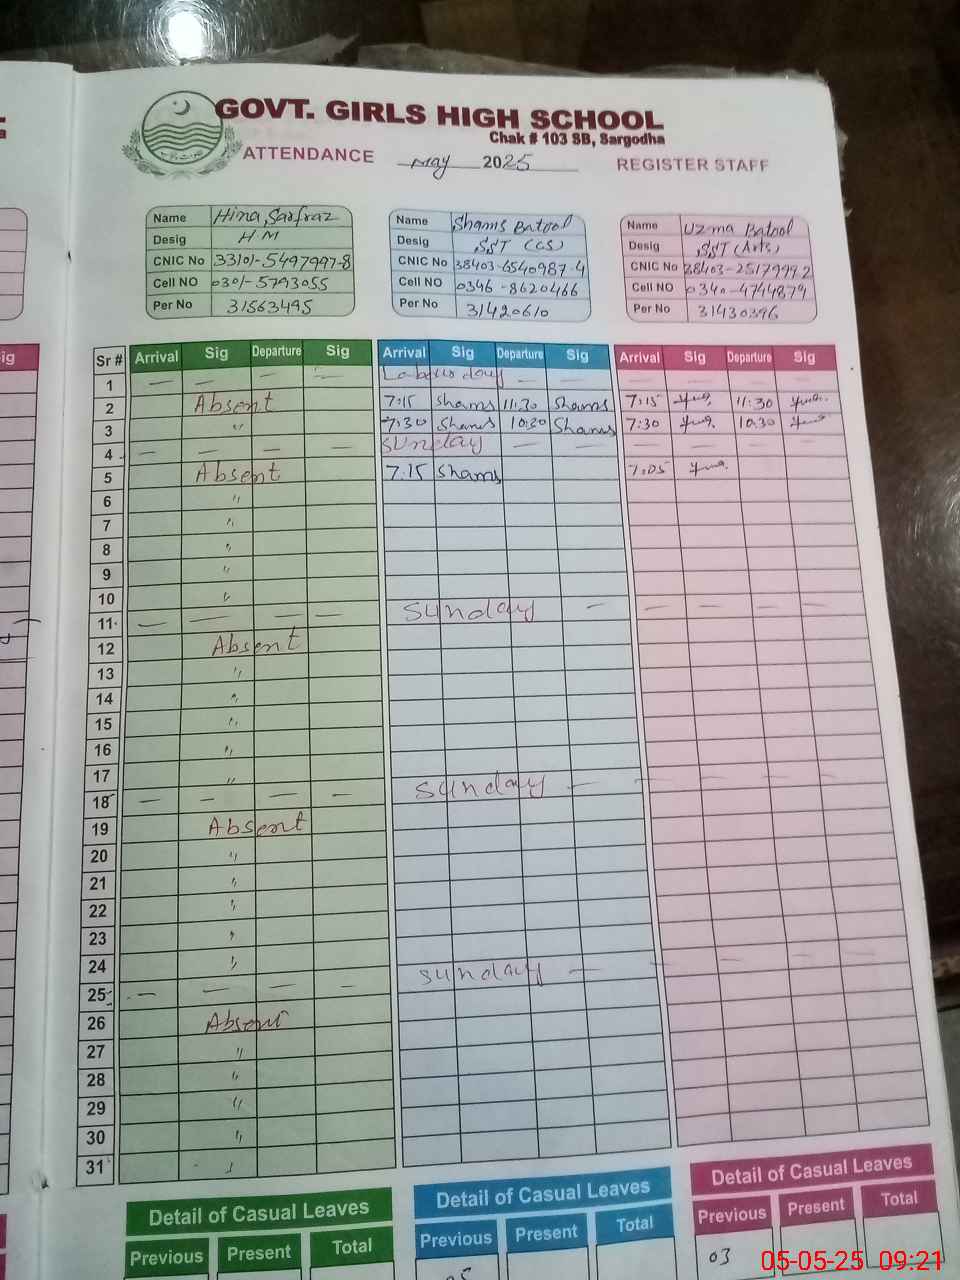 GOVT. GIRLS HIGH SCHOOL
Chak # 103 SB, Sargodha
ATTENDANCE May 2025 REGISTER STAFF
Name Hina Sarfraz
Desig H M
CNIC No 33101-5497997-8
Cell NO 0301-5793055
Per No 31563495
Name Shams Batool
Desig SST (CS)
CNIC No 38403-6540987-4
Cell NO 0346-8620466
Per No 31420610
Name Uzma Batool
Desig SST (Arts)
CNIC No 38403-2517999 2
Cell NO 0340-4744879
Per No 31430396
Sr # Arrival Sig Departure Sig Arrival Sig Departure Sig Arrival Sig Departure Sig
1 — — — — Labour day — —
2 Absent 7:15 Shams 11:30 Shams 7:15 11:30
3 " 7:30 Shams 10:30 Shams 7:30 10:30
4 — — — — Sunday — — — — — —
5 Absent 7:15 Shams 7:05
6 "
7 "
8 "
9 "
10 "
11 — — — — Sunday — — — — —
12 Absent
13 "
14 "
15 "
16 "
17 "
18 — — — — Sunday — — — — —
19 Absent
20 "
21 "
22 "
23 "
24 "
25 — — — — Sunday — — — — —
26 Absent
27 "
28 "
29 "
30 "
31 "
Detail of Casual Leaves
Previous Present Total
Detail of Casual Leaves
Previous Present Total
Detail of Casual Leaves
Previous Present Total
03
05-05-25 09:21